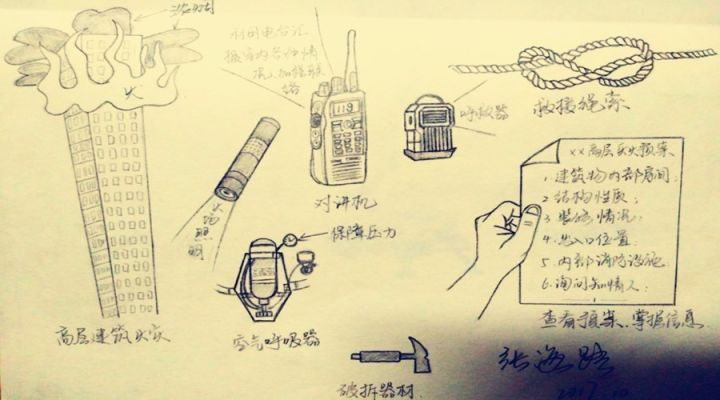 火
高层建筑火灾
火场照明
利用电台汇
报室内各种情
况入加强联
络
119
对讲机
呼救器
救援绳索
保障压力
空气呼吸器
破拆器材
xx高层灭火预案
1.建筑物内部房间;
2.结构性质;
3.装修情况;
4.出入口位置;
5.内部消防设施;
6.询问知情人;
查看预案.掌握信息
张海路